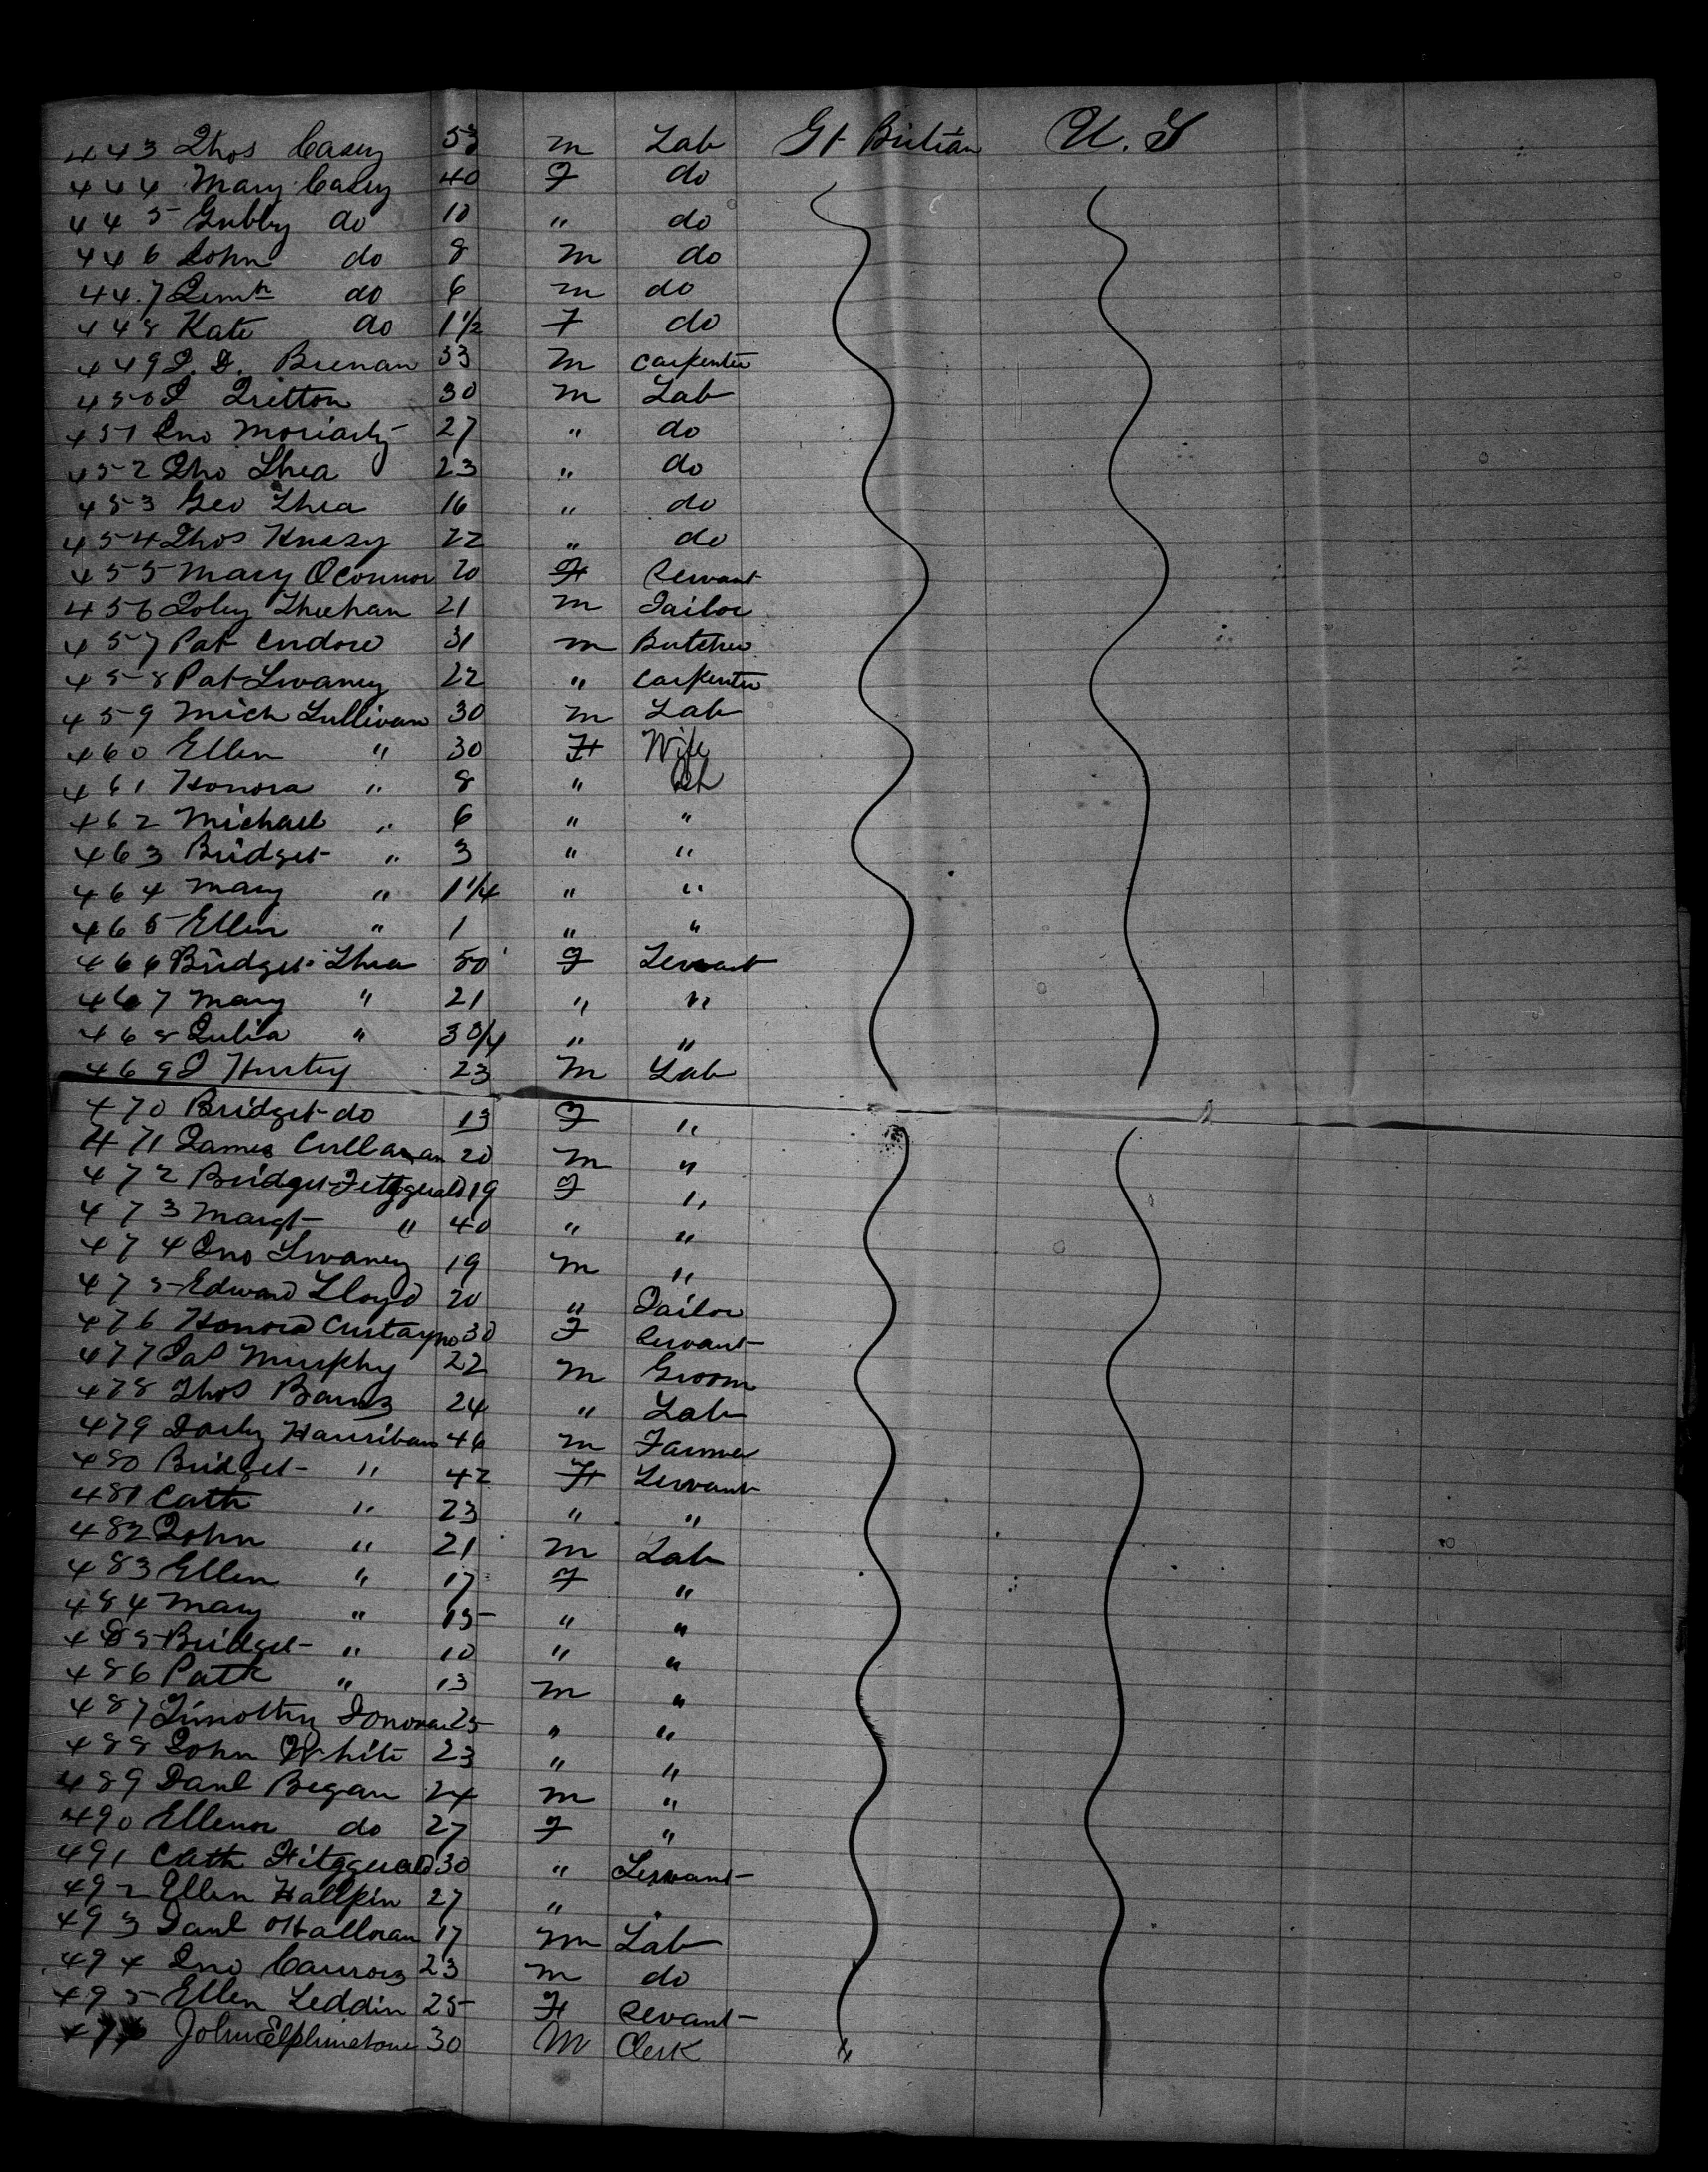 443 Thos Casey 53 m Lab Gt Britian U. S
444 Mary Casey 40 F do
445 Gubby do 10 " do
446 John do 8 m do
447 do 6 m do
448 Kate do 1 1/2 F do
449 Brenan 33 m Carpenter
450 J Tritton 30 m Lab
451 Jno Moriarty 27 " do
452 Tho Shea 23 " do
453 Geo Shea 16 " do
454 Thos 22 " do
455 Mary OConnor 20 F Servant
456 Sheehan 21 m Tailor
457 Pat 31 m Butcher
458 Pat Swaney 22 " Carpenter
459 Mich Sullivan 30 m Lab
460 Ellen " 30 F Wife
461 Honora " 8 " Ch
462 Michael " 6 " "
463 Bridget " 3 " "
464 Mary " 1 1/4 " "
465 Ellen " 1 " "
466 Bridget Shea 50 F Servant
467 Mary " 21 " "
468 Julia " 3 3/4 " "
469 J Hurley 23 m Lab
470 Bridget do 13 F "
471 James Cullanan 20 m "
472 Bridget Fetzgerald 19 F "
473 Margt " 40 " "
474 Jno Swaney 19 m "
475 Edward Lloyd 20 " Tailor
476 Honora 30 F Servant
477 Pat Murphy 22 m Groom
478 Thos 24 " Lab
479 Darby Harriban 46 m Farmer
480 Bridget " 42 F Servant
481 Cath " 23 " "
482 John " 21 m Lab
483 Ellen " 17 F "
484 Mary " 15 " "
485 Bridget " 10 " "
486 Patk " 13 m "
487 Timothy Donovan 25 " "
488 John White 23 " "
489 Danl Began 24 m "
490 Ellenor do 27 F "
491 Cath Fitzgerald 30 " Servant
492 Ellen Hallpin 27 "
493 Danl OHalloran 17 m Lab
494 Jno 23 m do
495 Ellen Leddin 25 F Servant
John Elphinstone 30 M Clerk